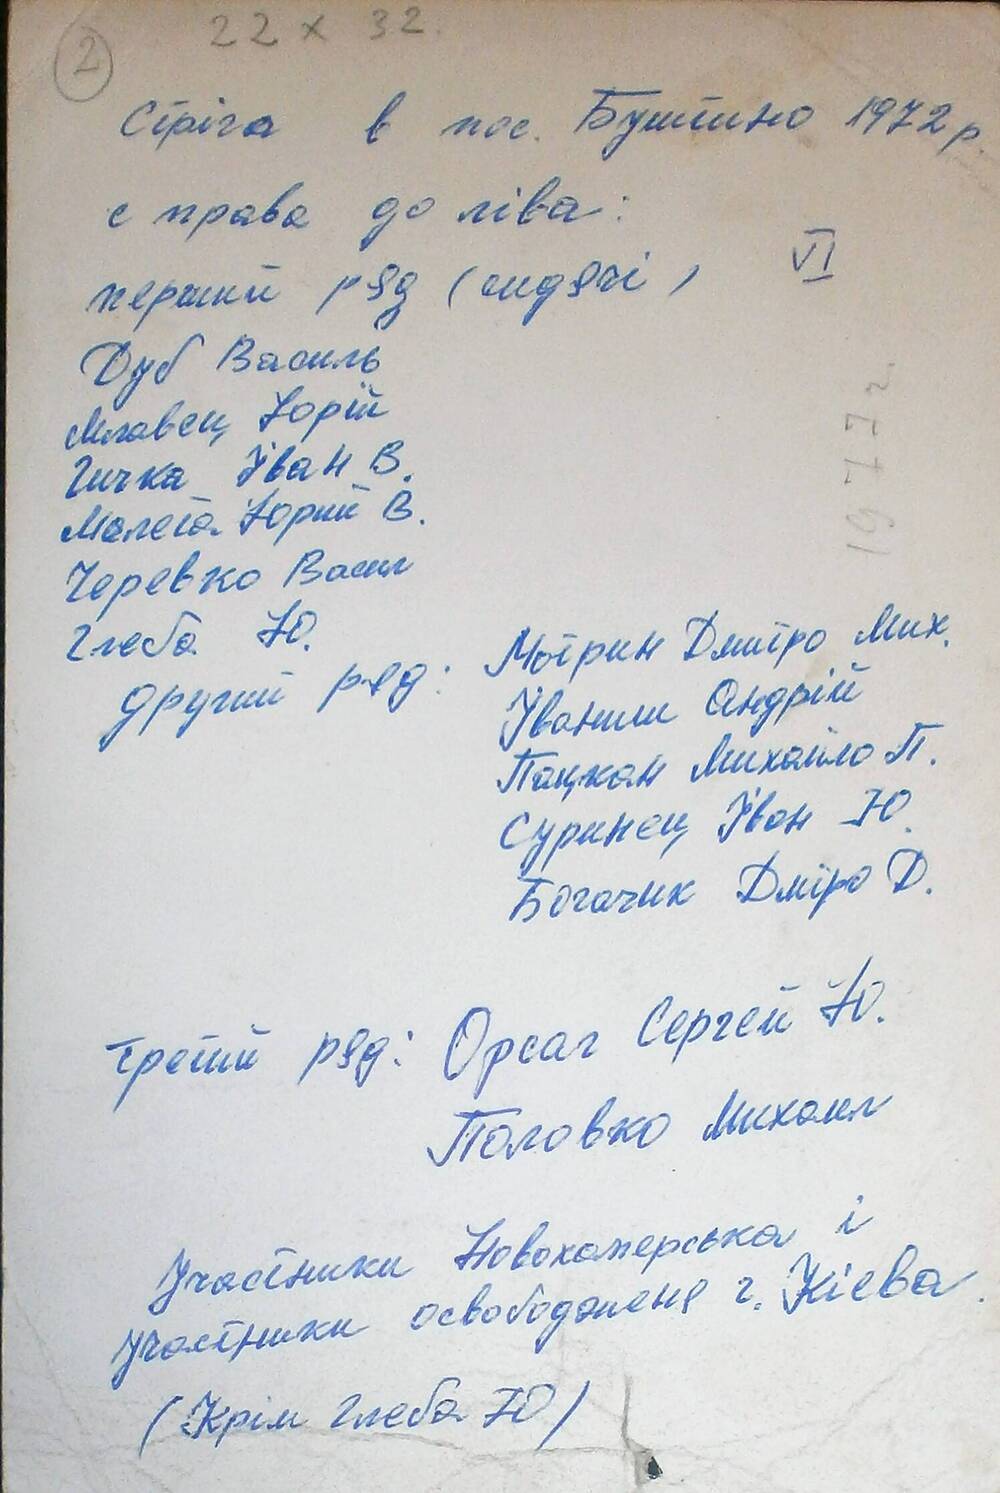 2
22 х 32.
Стріга в пос. Буштино 1972 р.
с права до ліва:
VI
перший ряд (сидячі)
Дуб Василь
Млавец Юрій
Гичка Іван В.
Малета Юрий В.
Черевко Васил
Глеба Ю.
1977 г
другий ряд: Мотрин Дмитро Мих.
Іваниш Андрій
Пацкан Михайло П.
Суринец Іван Ю.
Богачик Дміро Д.
третий ряд: Орсаг Сергей Ю.
Половко Михаил
Участники Новохоперська і
участники освобождженя г. Кієва.
(Крім Глеба Ю)